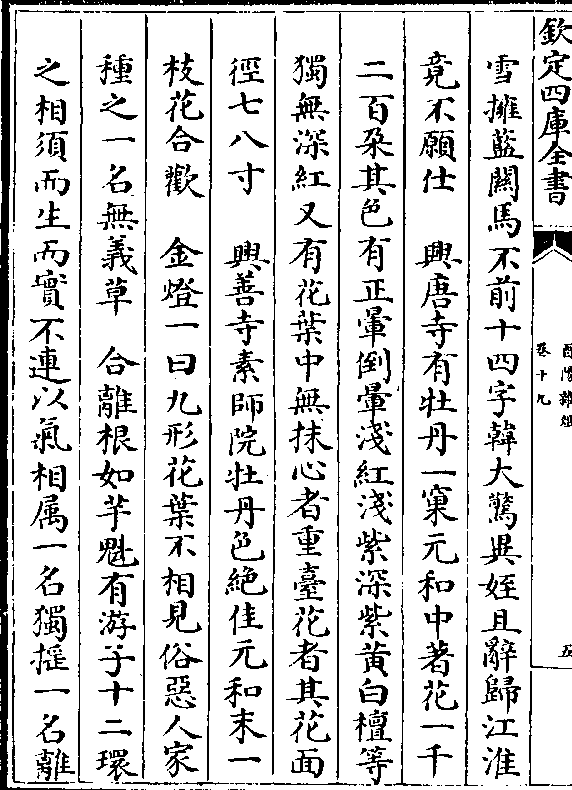 欽定四庫全書
酉陽雜俎
卷十九
五
雪擁藍闗馬不前十四字韓大驚異姪且辭歸江淮
竟不願仕　興唐寺有牡丹一窠元和中著花一千
二百朶其色有正暈倒暈淺紅淺紫深紫黄白檀等
獨無深紅又有花葉中無抹心者重臺花者其花面
徑七八寸　興善寺素師院牡丹色絶佳元和末一
枝花合歡　金燈一曰九形花葉不相見俗惡人家
種之一名無義草　合離根如芋魁有游子十二環
之相須而生而實不連以氣相属一名獨摇一名離